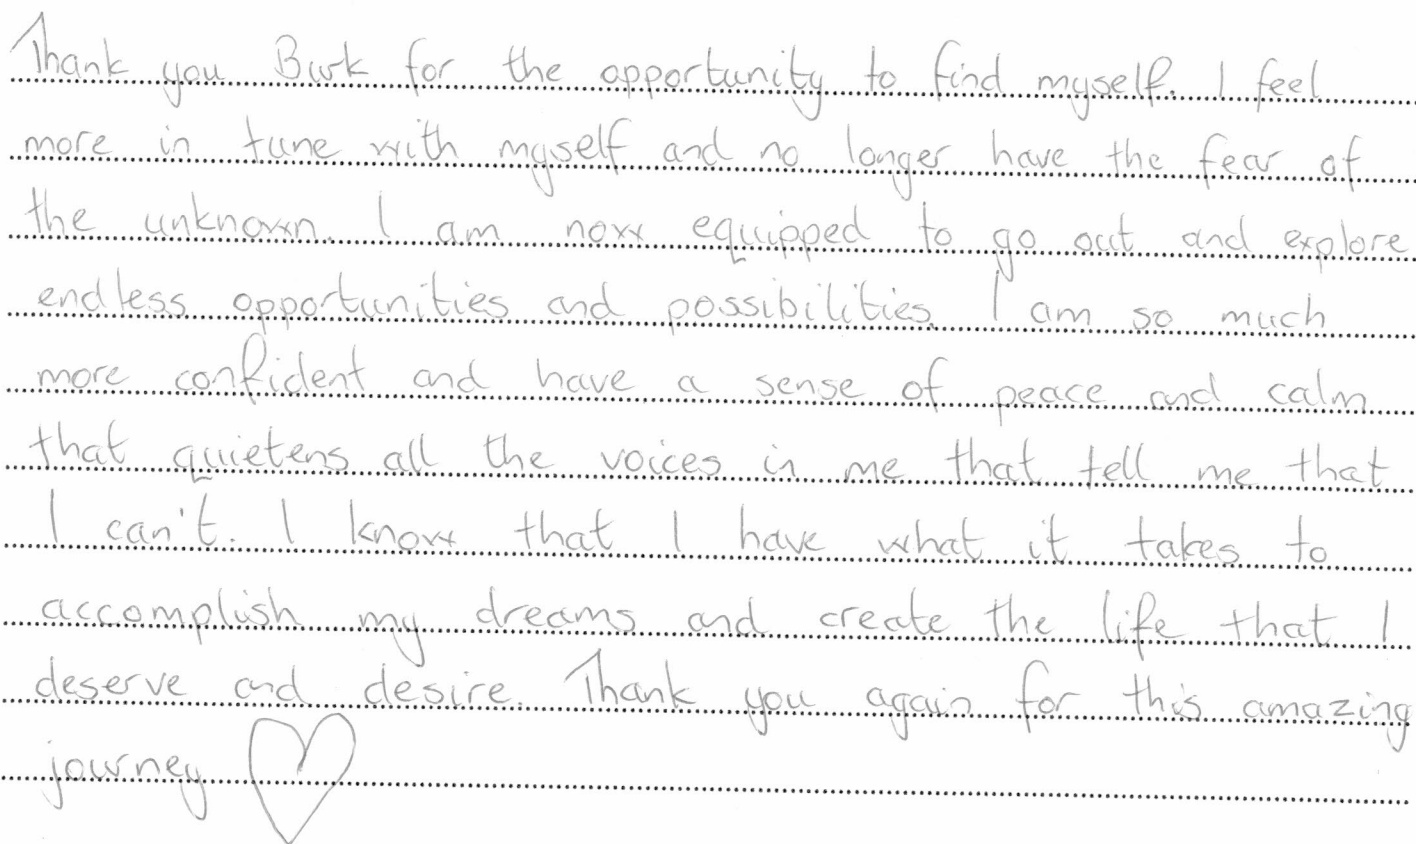 Thank you Burk for the opportunity to find myself. I feel
more in tune with myself and no longer have the fear of
the unknown. I am now equipped to go out and explore
endless opportunities and possibilities. I am so much
more confident and have a sense of peace and calm
that quietens all the voices in me that tell me that
I can't. I know that I have what it takes to
accomplish my dreams and create the life that I
deserve and desire. Thank you again for this amazing
journey